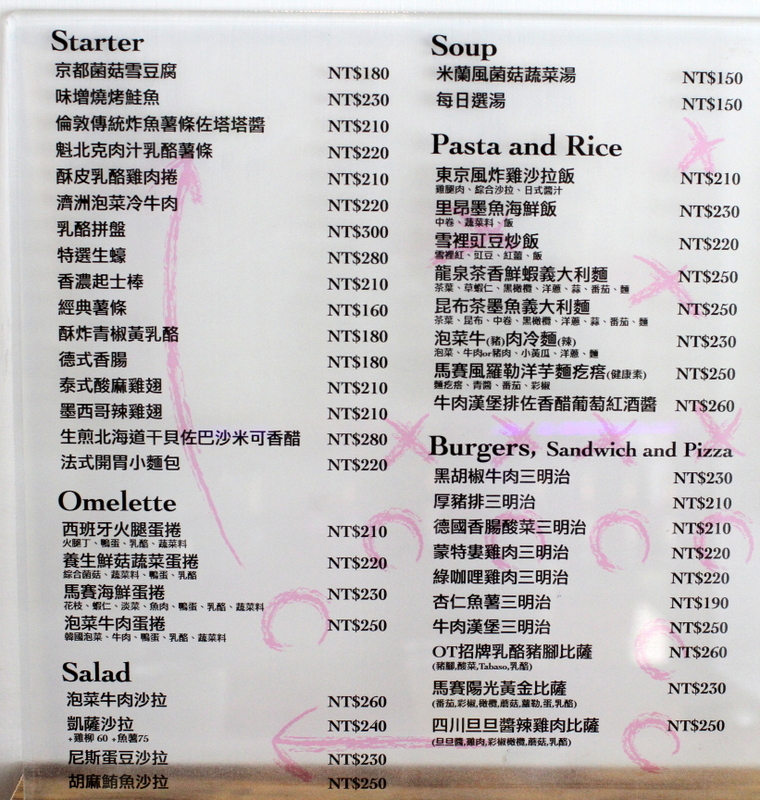 Starter
京都菌菇雪豆腐 NT$180
味增燒烤鮭魚 NT$230
倫敦傳統炸魚薯條佐塔塔醬 NT$210
魁北克肉汁乳酪薯條 NT$220
酥皮乳酪雞肉捲 NT$210
濟洲泡菜冷牛肉 NT$220
乳酪拼盤 NT$300
特選生蠔 NT$280
香濃起士棒 NT$210
經典薯條 NT$160
酥炸青椒黃乳酪 NT$180
德式香腸 NT$180
泰式酸麻雞翅 NT$210
墨西哥辣雞翅 NT$210
生煎北海道干貝佐巴沙米可香醋 NT$280
法式開胃小麵包 NT$220
Omelette
西班牙火腿蛋捲 NT$210
火腿丁、鴨蛋、乳酪、蔬菜料
養生鮮菇蔬菜蛋捲 NT$220
綜合菌菇、蔬菜料、鴨蛋、乳酪
馬賽海鮮蛋捲 NT$230
花枝、蝦仁、淡菜、魚肉、鴨蛋、乳酪、蔬菜料
泡菜牛肉蛋捲 NT$250
韓國泡菜、牛肉、鴨蛋、乳酪、蔬菜料
Salad
泡菜牛肉沙拉 NT$260
凱薩沙拉 NT$240
+雞柳 60 +魚薯75
尼斯蛋豆沙拉 NT$230
胡麻鮪魚沙拉 NT$250
Soup
米蘭風菌菇蔬菜湯 NT$150
每日選湯 NT$150
Pasta and Rice
東京風炸雞沙拉飯 NT$210
雞腿肉、綜合沙拉、日式醬汁
里昂墨魚海鮮飯 NT$230
中卷、蔬菜料、飯
雪裡豇豆炒飯 NT$220
雪裡紅、豇豆、紅蘿、飯
龍泉茶香鮮蝦義大利麵 NT$250
茶葉、草蝦仁、黑橄欖、洋蔥、蒜、番茄、麵
昆布茶墨魚義大利麵 NT$250
茶葉、昆布、中卷、黑橄欖、洋蔥、蒜、番茄、麵
泡菜牛(豬)肉冷麵(辣) NT$230
泡菜、牛肉or豬肉、小黃瓜、洋蔥、麵
馬賽風羅勒洋芋麵疙瘩(健康素) NT$250
麵疙瘩、青醬、番茄、彩椒
牛肉漢堡排佐香醋葡萄紅酒醬 NT$260
Burgers, Sandwich and Pizza
黑胡椒牛肉三明治 NT$230
厚豬排三明治 NT$210
德國香腸酸菜三明治 NT$210
蒙特婁雞肉三明治 NT$220
綠咖哩雞肉三明治 NT$220
杏仁魚薯三明治 NT$190
牛肉漢堡三明治 NT$250
OT招牌乳酪豬腳比薩 NT$260
(豬腳,酸菜,Tabaso,乳酪)
馬賽陽光黃金比薩 NT$230
(番茄,彩椒,橄欖,蘑菇,蘿勒,蛋,乳酪)
四川旦旦醬辣雞肉比薩 NT$250
(旦旦醬,雞肉,彩椒橄欖,蘑菇,乳酪)